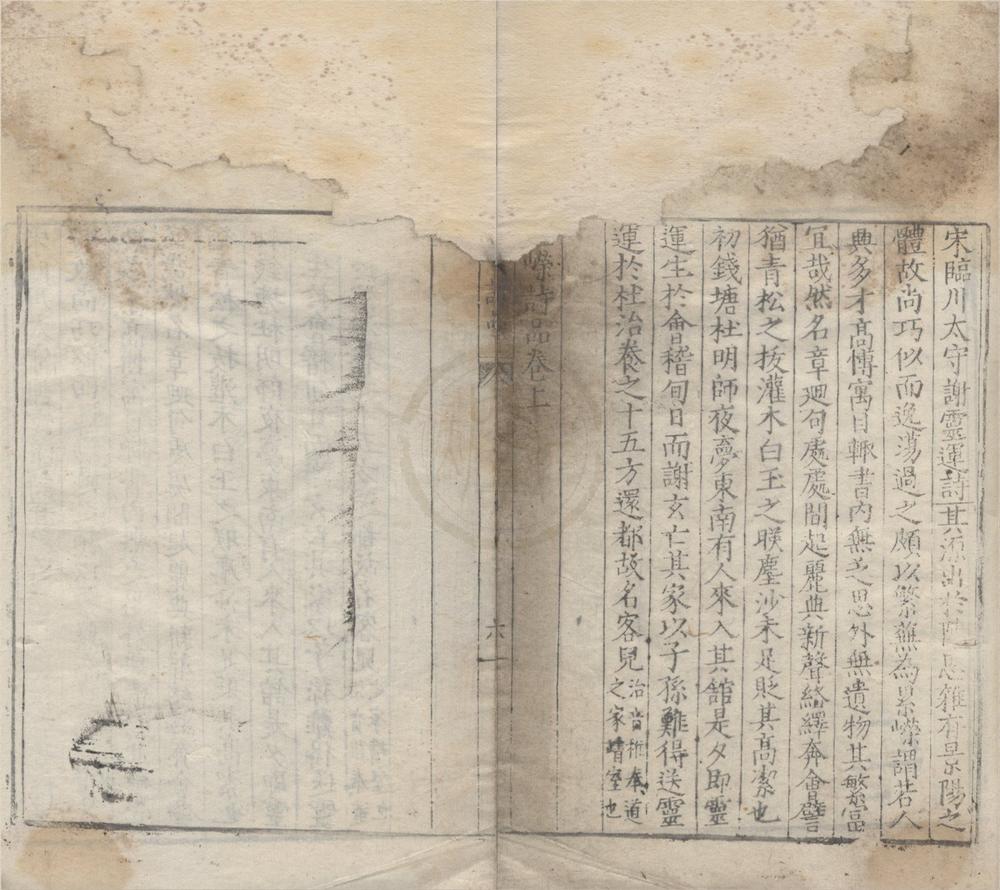 宋臨川太守謝靈運詩其源出於陳思雜有景陽之
體故尚巧似而逸蕩過之頗以繁蕪為累嶸謂若人
興多才高博寓目輙書内無乏思外無遺物其繁富
宜哉然名章迥句處處間起麗典新聲絡繹奔會譬
猶青松之拔灌木白玉之映塵沙未足貶其高潔也
初錢塘杜明師夜夢東南有人來入其館是夕即靈
運生於會稽旬日而謝玄亡其家以子孫難得送靈
運於杜治養之十五方還都故名客兒治音稚奉道
之家靖室也
嶸詩品卷上
詩品
六